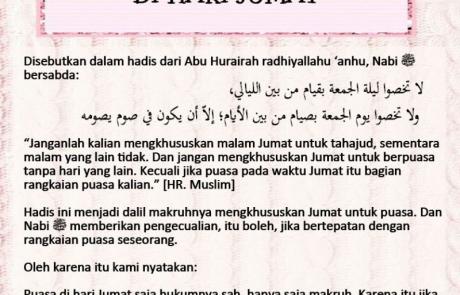 DI HARI JUMAT
Disebutkan dalam hadis dari Abu Hurairah radhiyallahu ‘anhu, Nabi ﷺ
bersabda:
لا تخصوا ليلة الجمعة بقيام من بين الليالي،
ولا تخصوا يوم الجمعة بصيام من بين الأيام؛ إلاّ أن يكون في صوم يصومه
“Janganlah kalian mengkhususkan malam Jumat untuk tahajud, sementara
malam yang lain tidak. Dan jangan mengkhususkan Jumat untuk berpuasa
tanpa hari yang lain. Kecuali jika puasa pada waktu Jumat itu bagian
rangkaian puasa kalian.” [HR. Muslim]
Hadis ini menjadi dalil makruhnya mengkhususkan Jumat untuk puasa. Dan
Nabi ﷺ memberikan pengecualian, itu boleh, jika bertepatan dengan
rangkaian puasa seseorang.
Oleh karena itu kami nyatakan:
Puasa di hari Jumat saja hukumnya sah, hanya saja makruh. Karena itu jika